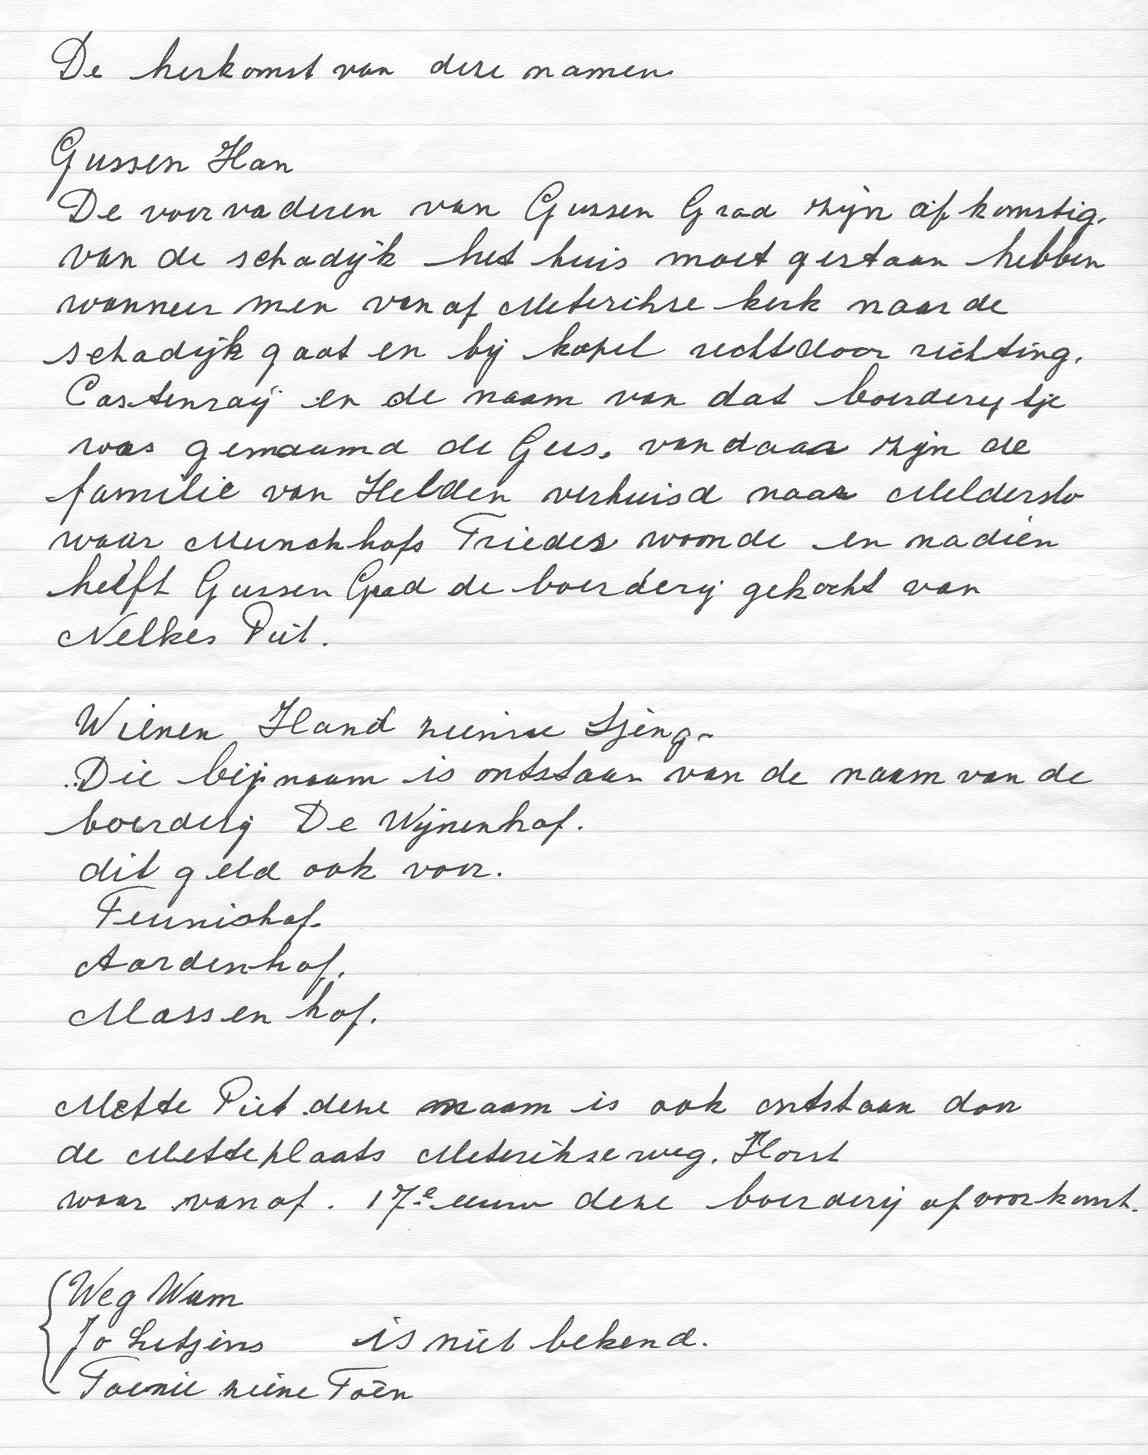 De herkomst van deze namen
Gussen Han
De voorvaderen van Gussen Grad zijn afkomstig.
van de schadijk het huis moet gestaan hebben
wanneer men vanaf Meterikse kerk naar de
schadijk gaat en bij kapel rechtdoor richting.
Castenraij en de naam van dat boerderijtje
was genaamd de Gus. vandaar zijn de
familie van Helden verhuisd naar Melderslo
waar Munckhofs Driedes woonde en nadien
heeft Gussen Grad de boerderij gekocht van
Nelkes Piet.
Wienen Hand Sjeng.
Die bijnaam is ontstaan van de naam van de
boerderij De Wijnenhof.
dit geld ook voor.
Teunishof.
Aardenhof.
Massen hof.
Mette Piet deze naam is ook ontstaan door
de Metteplaats Meterikseweg. Horst
waar vanaf. 17e eeuw deze boerderij of voorkomt.
Weg Wum
Jo Lutjens is niet bekend.
Toenie Toën